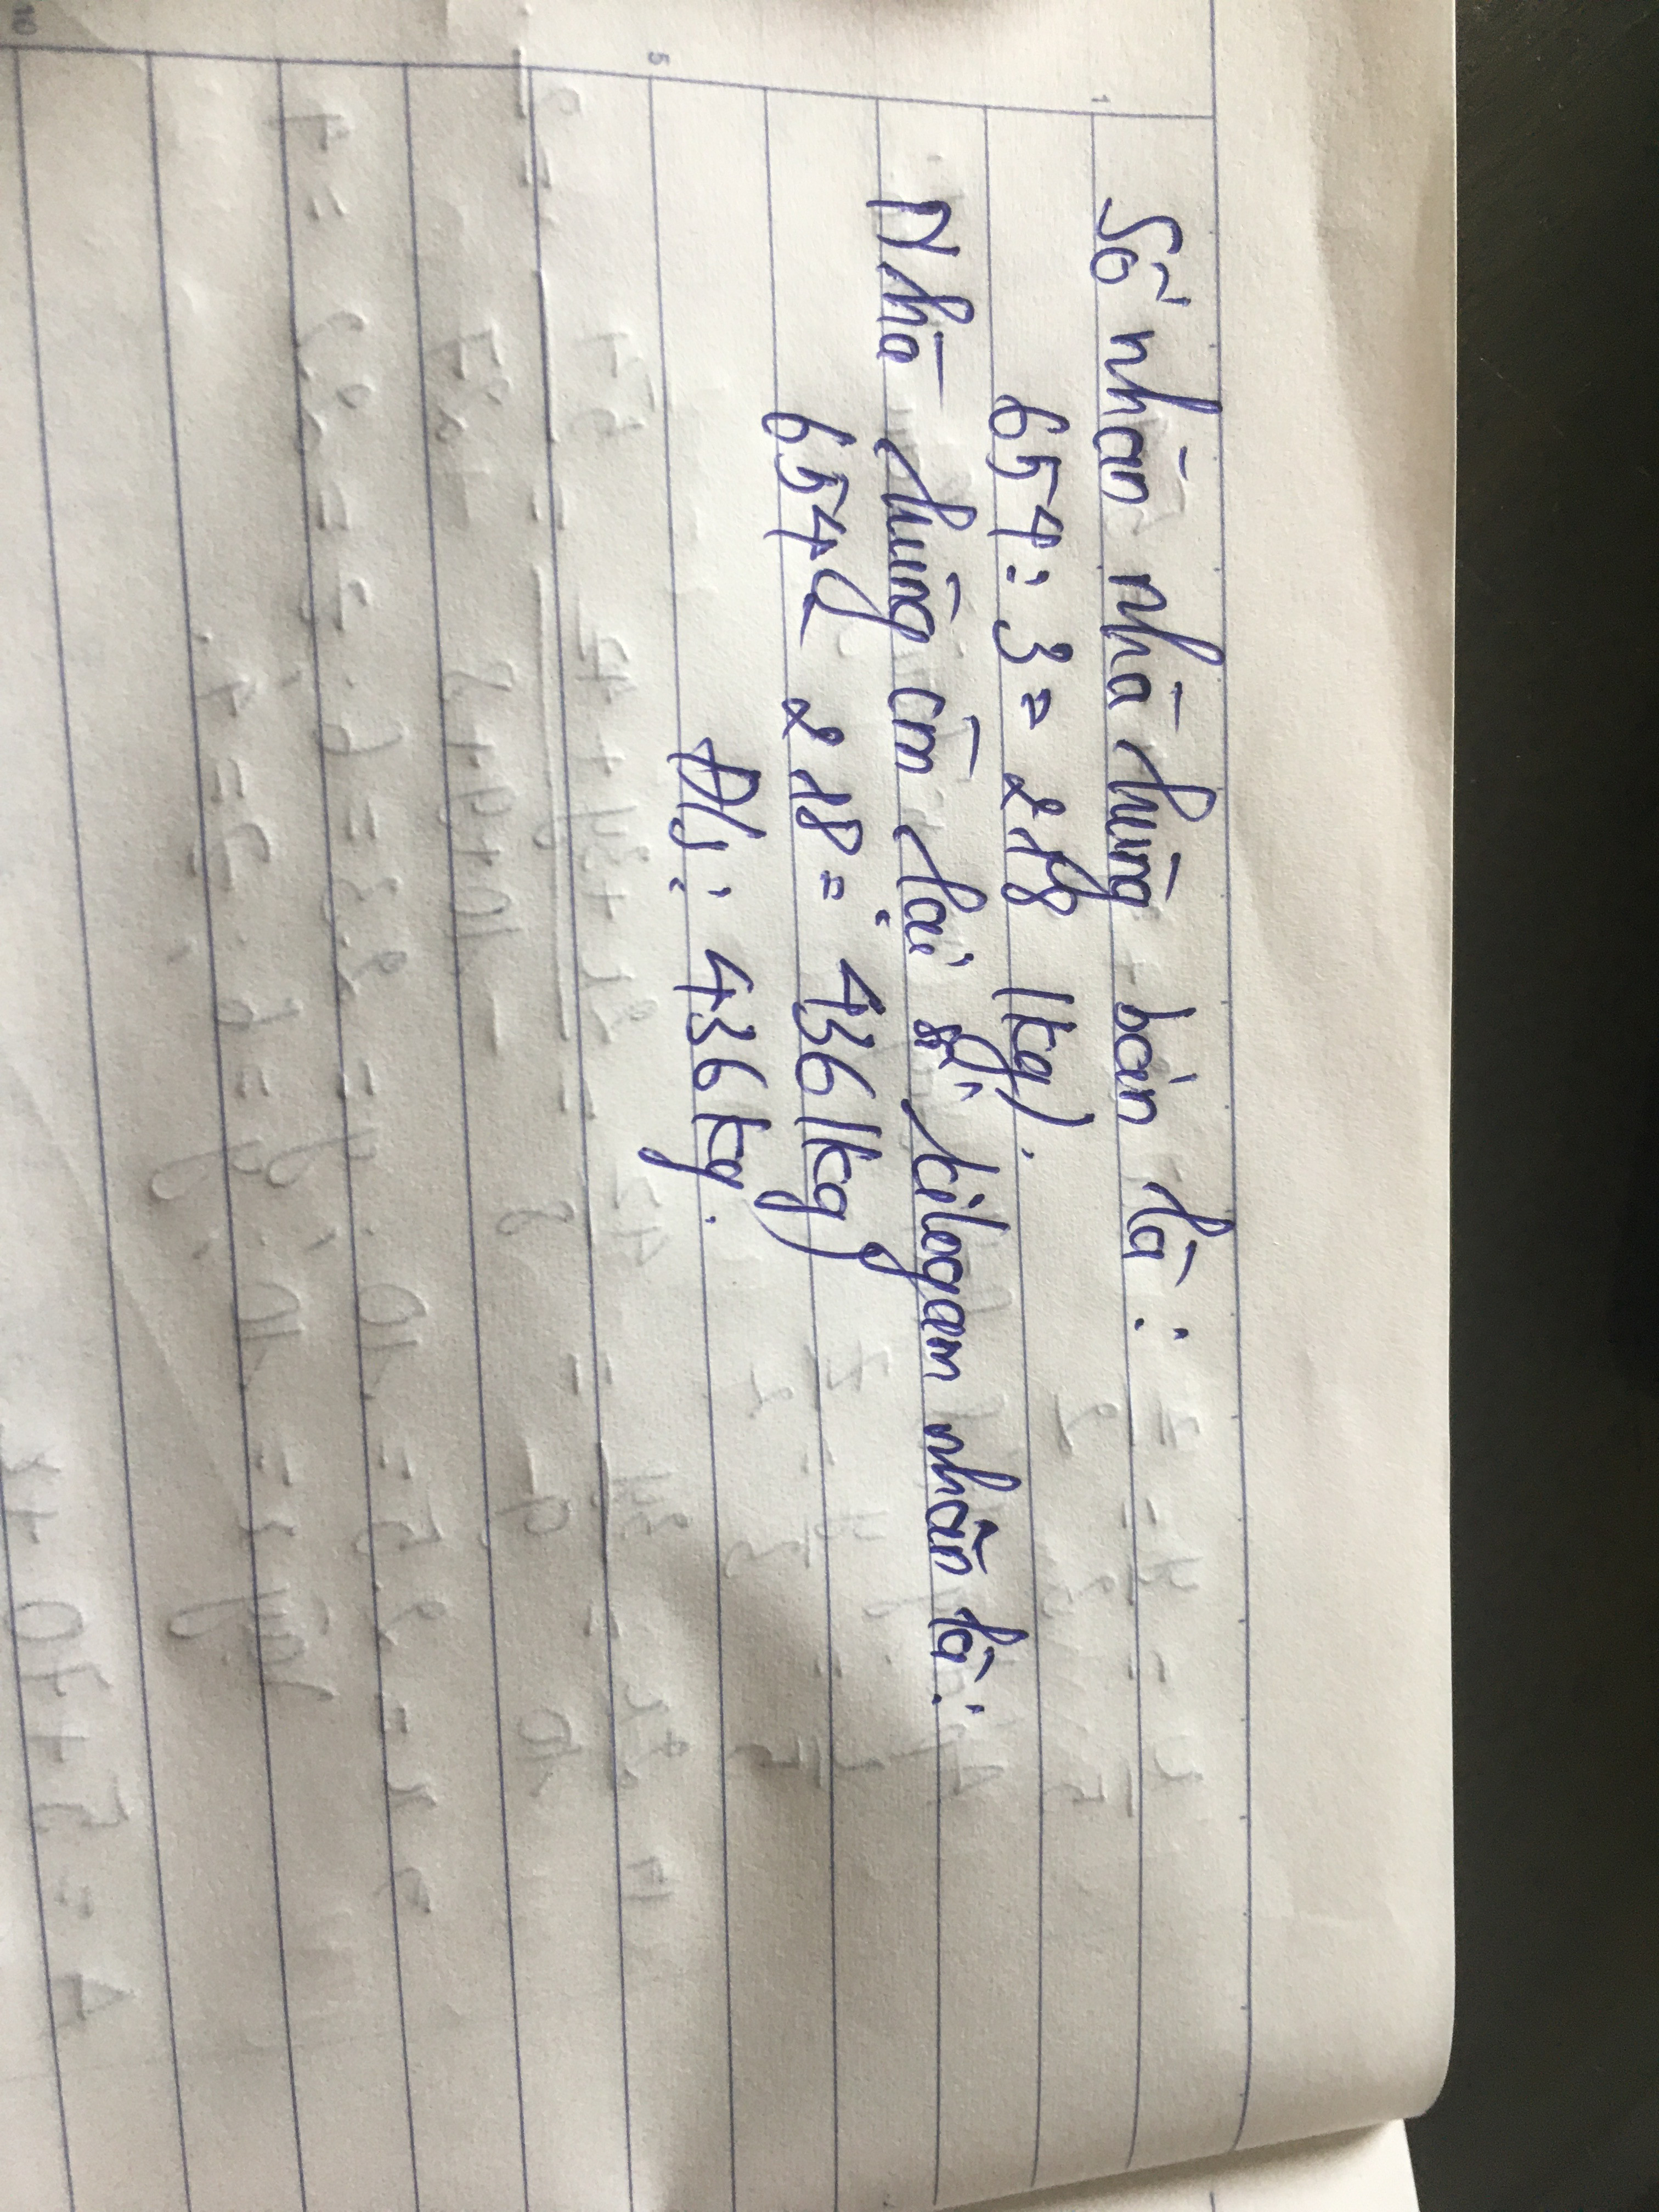 Số nhãn nhà hùng bán là :
654 : 3 = 218 (kg).
Nhà hùng còn lại kilogam nhãn là :
654 - 218 = 436 (kg)
Đ/s : 436 kg.
1
5
10